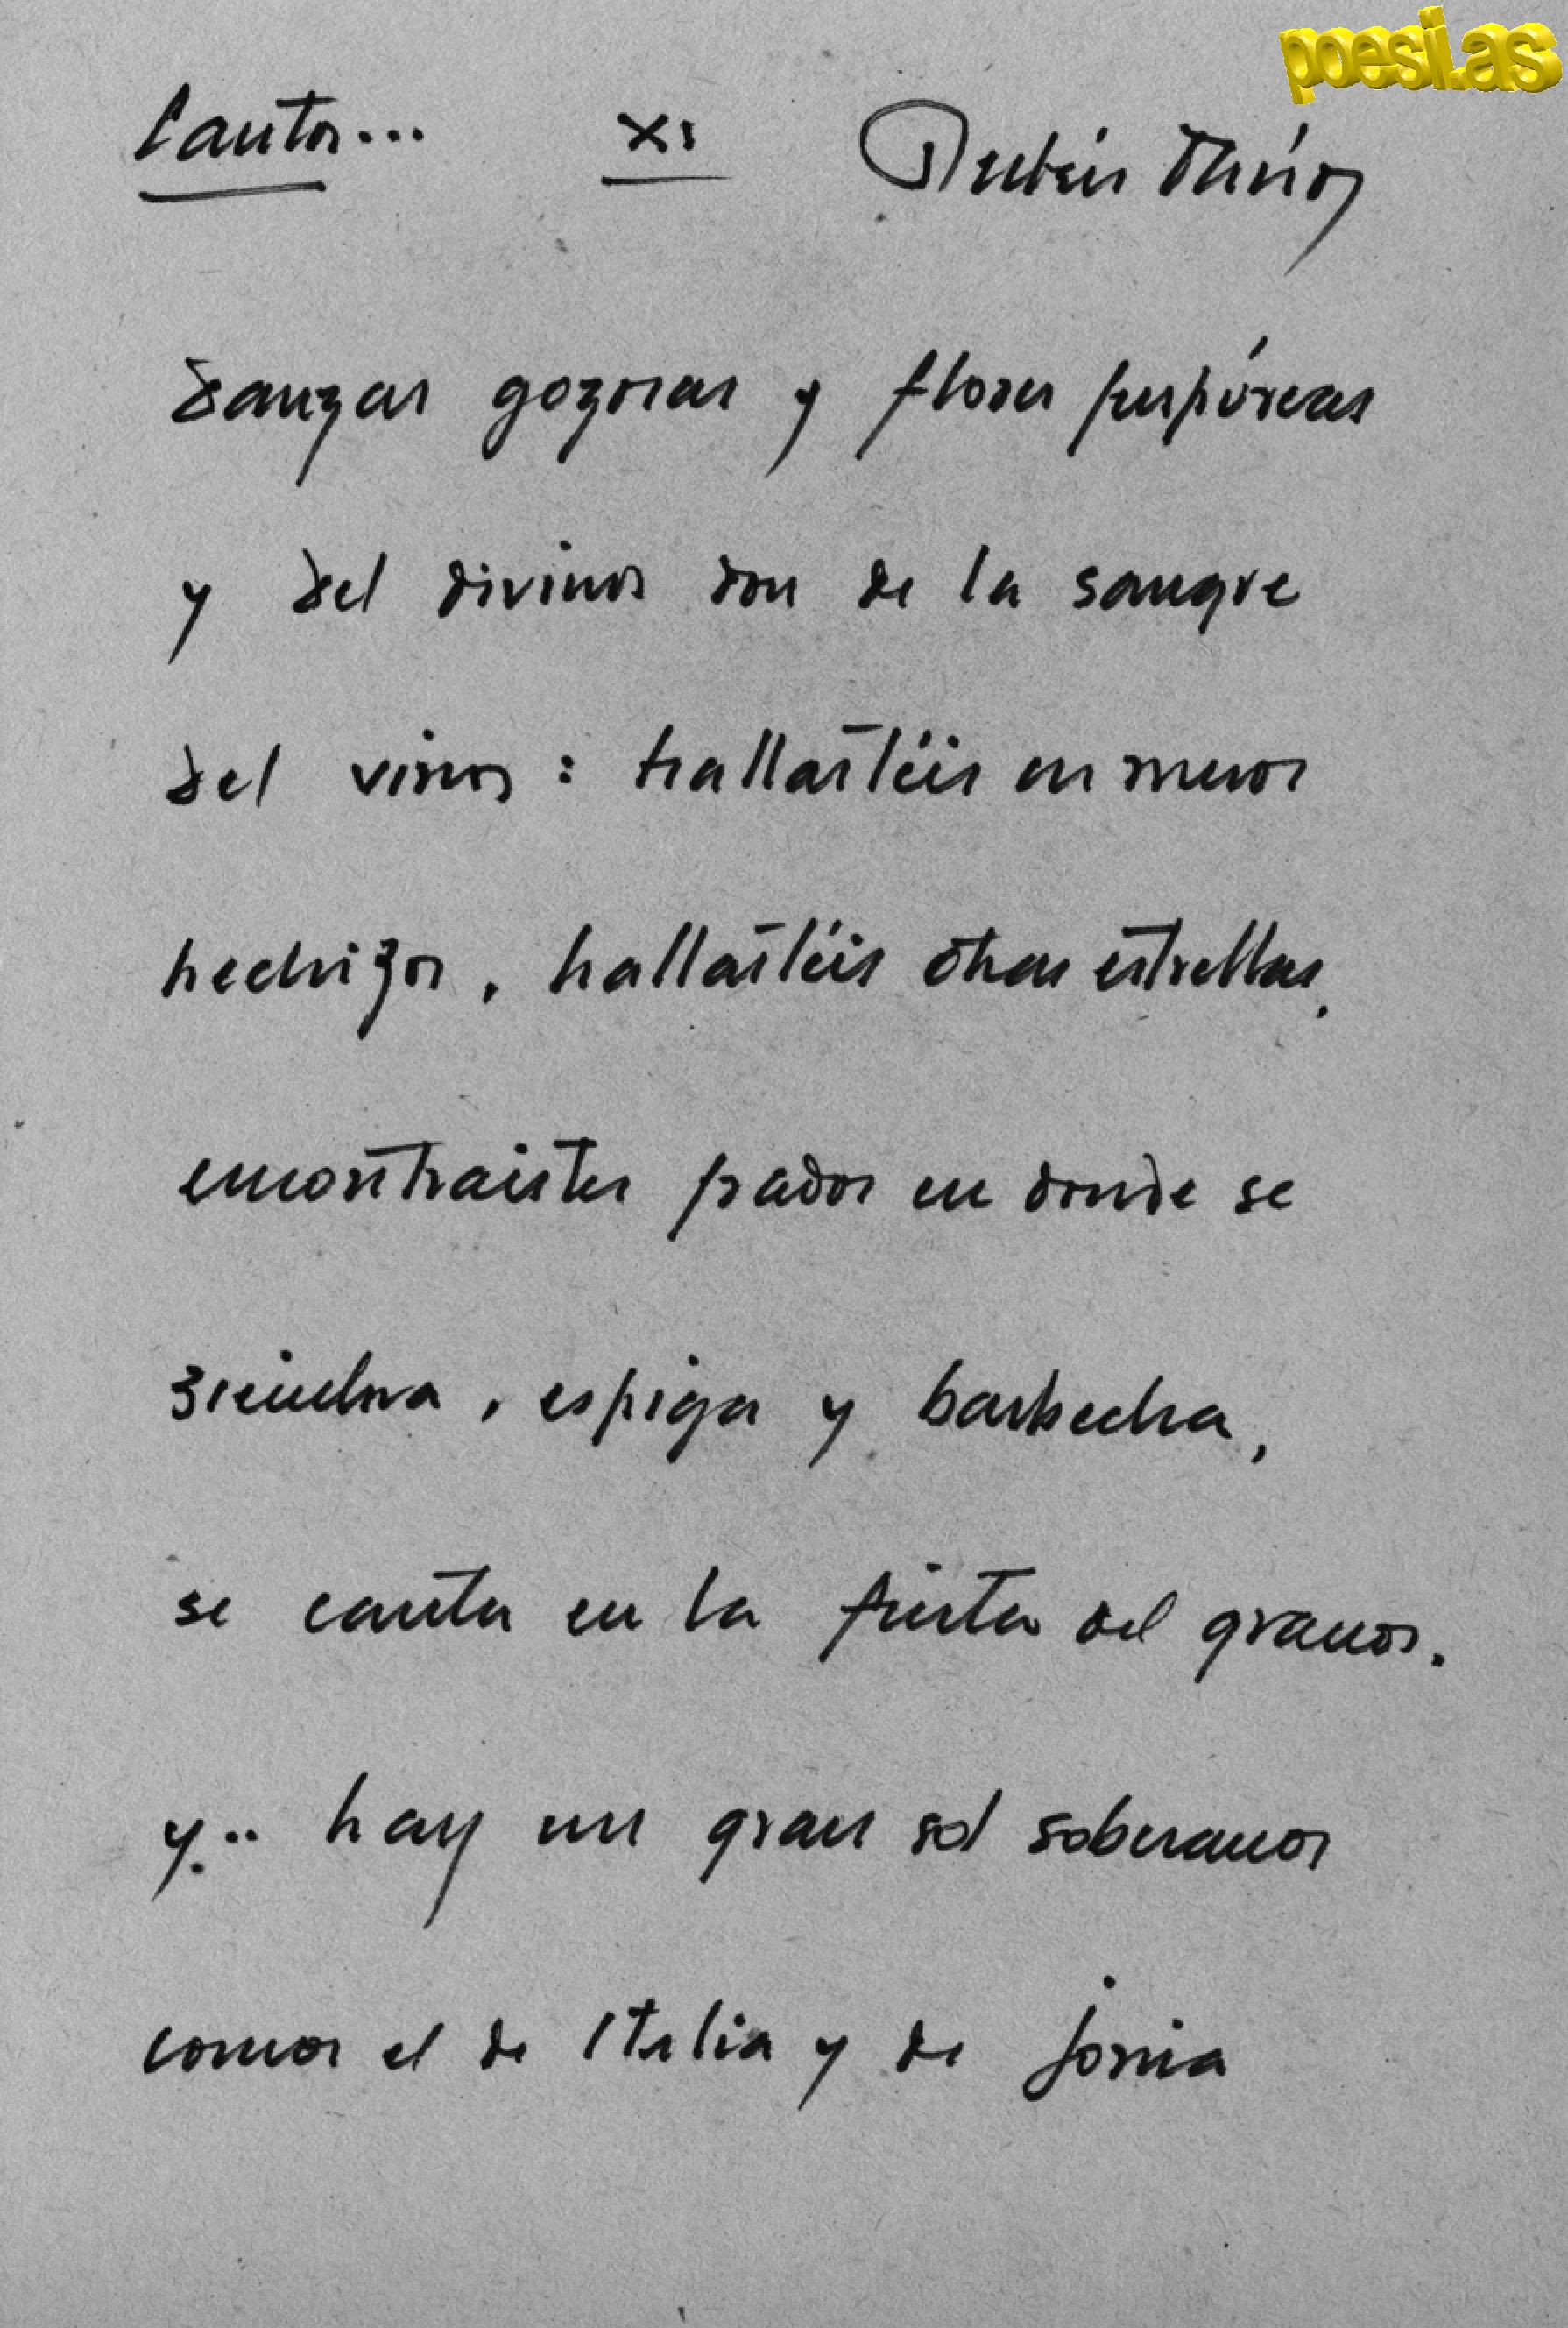 poesi.as
Canto... XI Rubén Darío
danzas gozosas y flores purpúreas
y del divino don de la sangre
del vino: hallasteis nuevos
hechizos, hallasteis otras estrellas,
encontrasteis prados en donde se
siembra, espiga y barbecha,
se canta en la fiesta del grano.
y... hay un gran sol soberano
como el de Italia y de Jonia